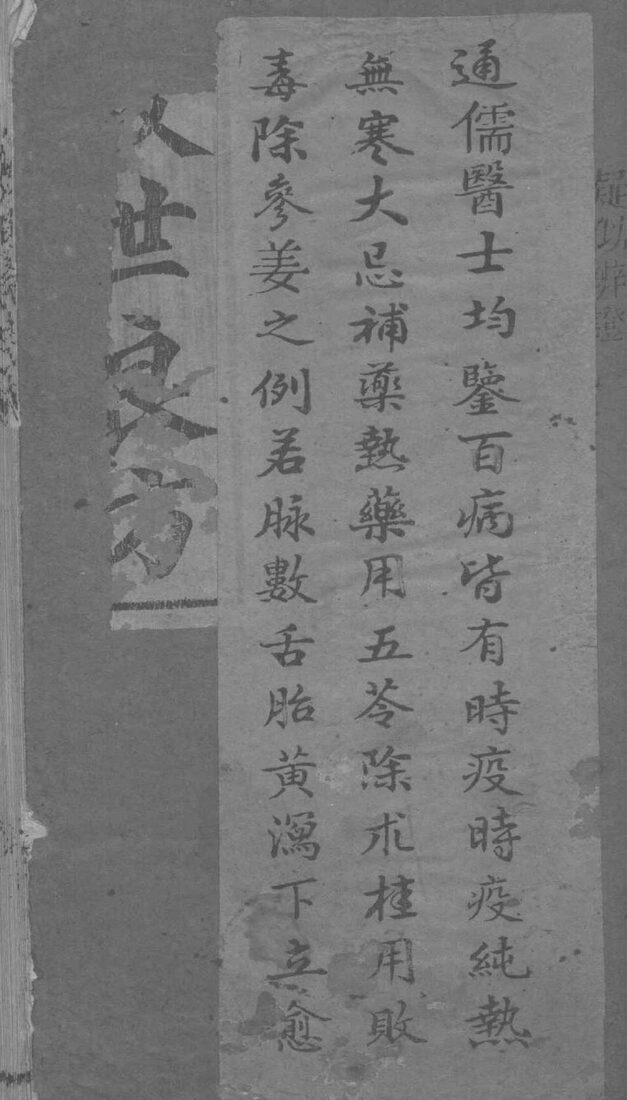 通儒醫士均鑒百病皆有時疫時疫純熱
無寒大忌補藥熱藥用五苓除朮桂用敗
毒除參姜之例若脉數舌胎黃瀉下立愈
世良方